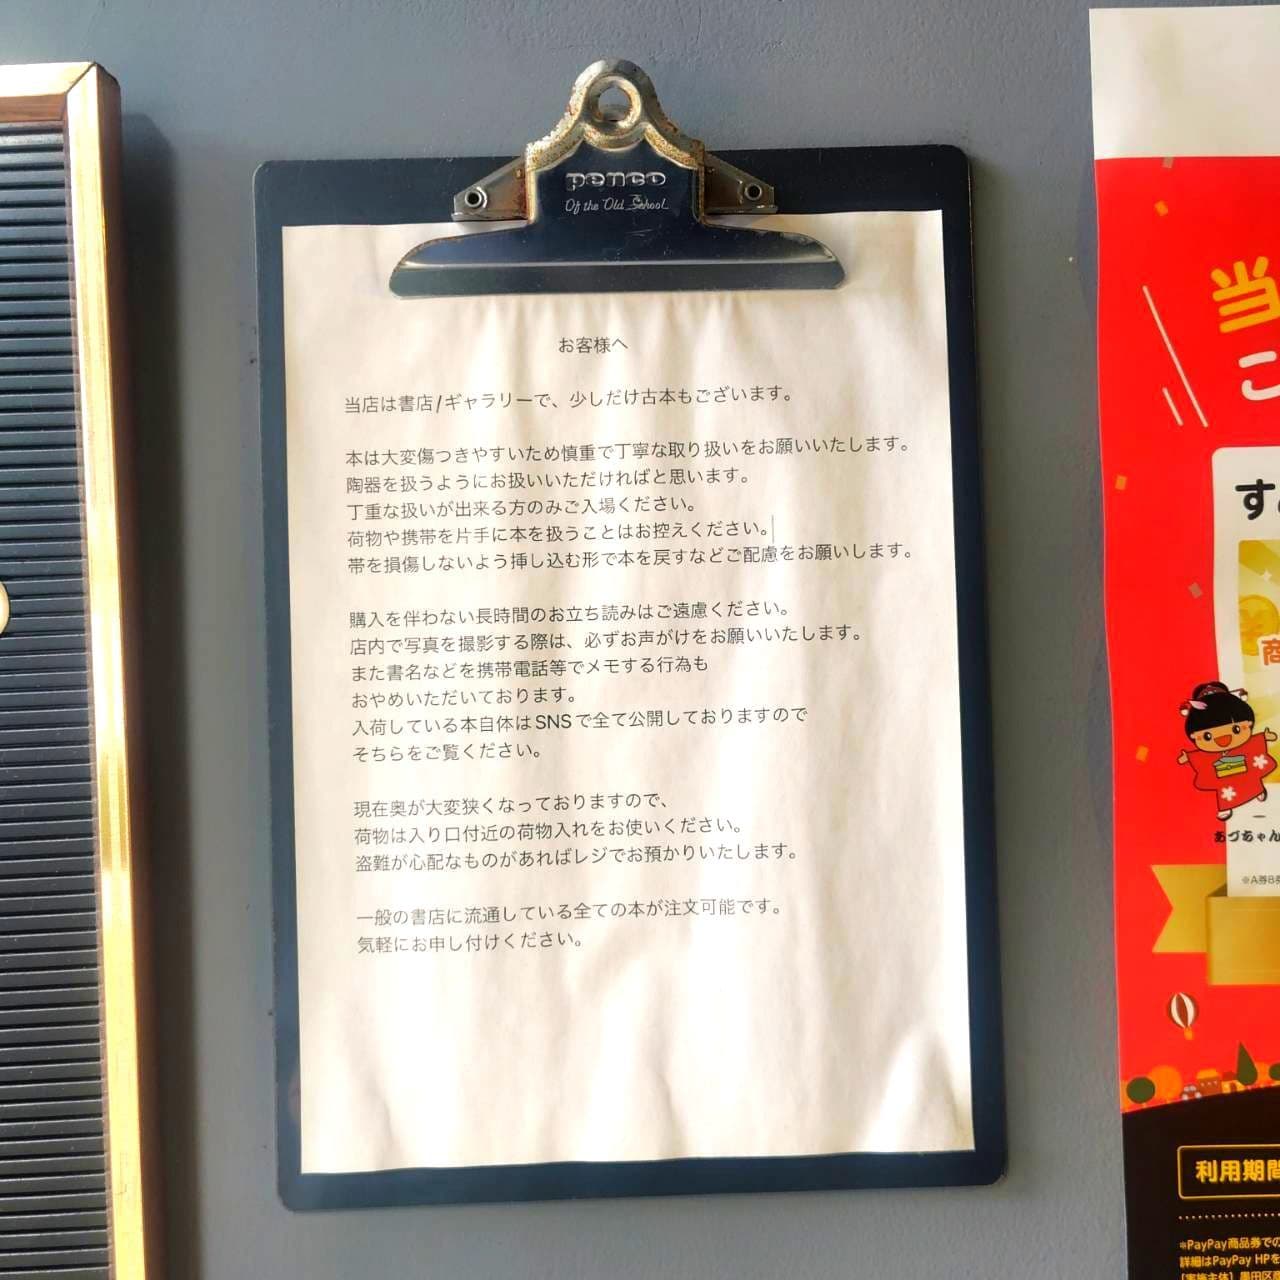 penco
Of the Old School
お客様へ
当店は書店/ギャラリーで、少しだけ古本もございます。
本は大変傷つきやすいため慎重で丁寧な取り扱いをお願いいたします。
陶器を扱うようにお扱いいただければと思います。
丁重な扱いが出来る方のみご入場ください。
荷物や携帯を片手に本を扱うことはお控えください。
帯を損傷しないよう挿し込む形で本を戻すなどご配慮をお願いします。
購入を伴わない長時間のお立ち読みはご遠慮ください。
店内で写真を撮影する際は、必ずお声がけをお願いいたします。
また書名などを携帯電話等でメモする行為も
おやめいただいております。
入荷している本自体はSNSで全て公開しておりますので
そちらをご覧ください。
現在奥が大変狭くなっておりますので、
荷物は入り口付近の荷物入れをお使いください。
盗難が心配なものがあればレジでお預かりいたします。
一般の書店に流通している全ての本が注文可能です。
気軽にお申し付けください。
当
こ
す
商
あづちゃん
※A券B券
利用期間
*PayPay商品券での
詳細はPayPay HPを